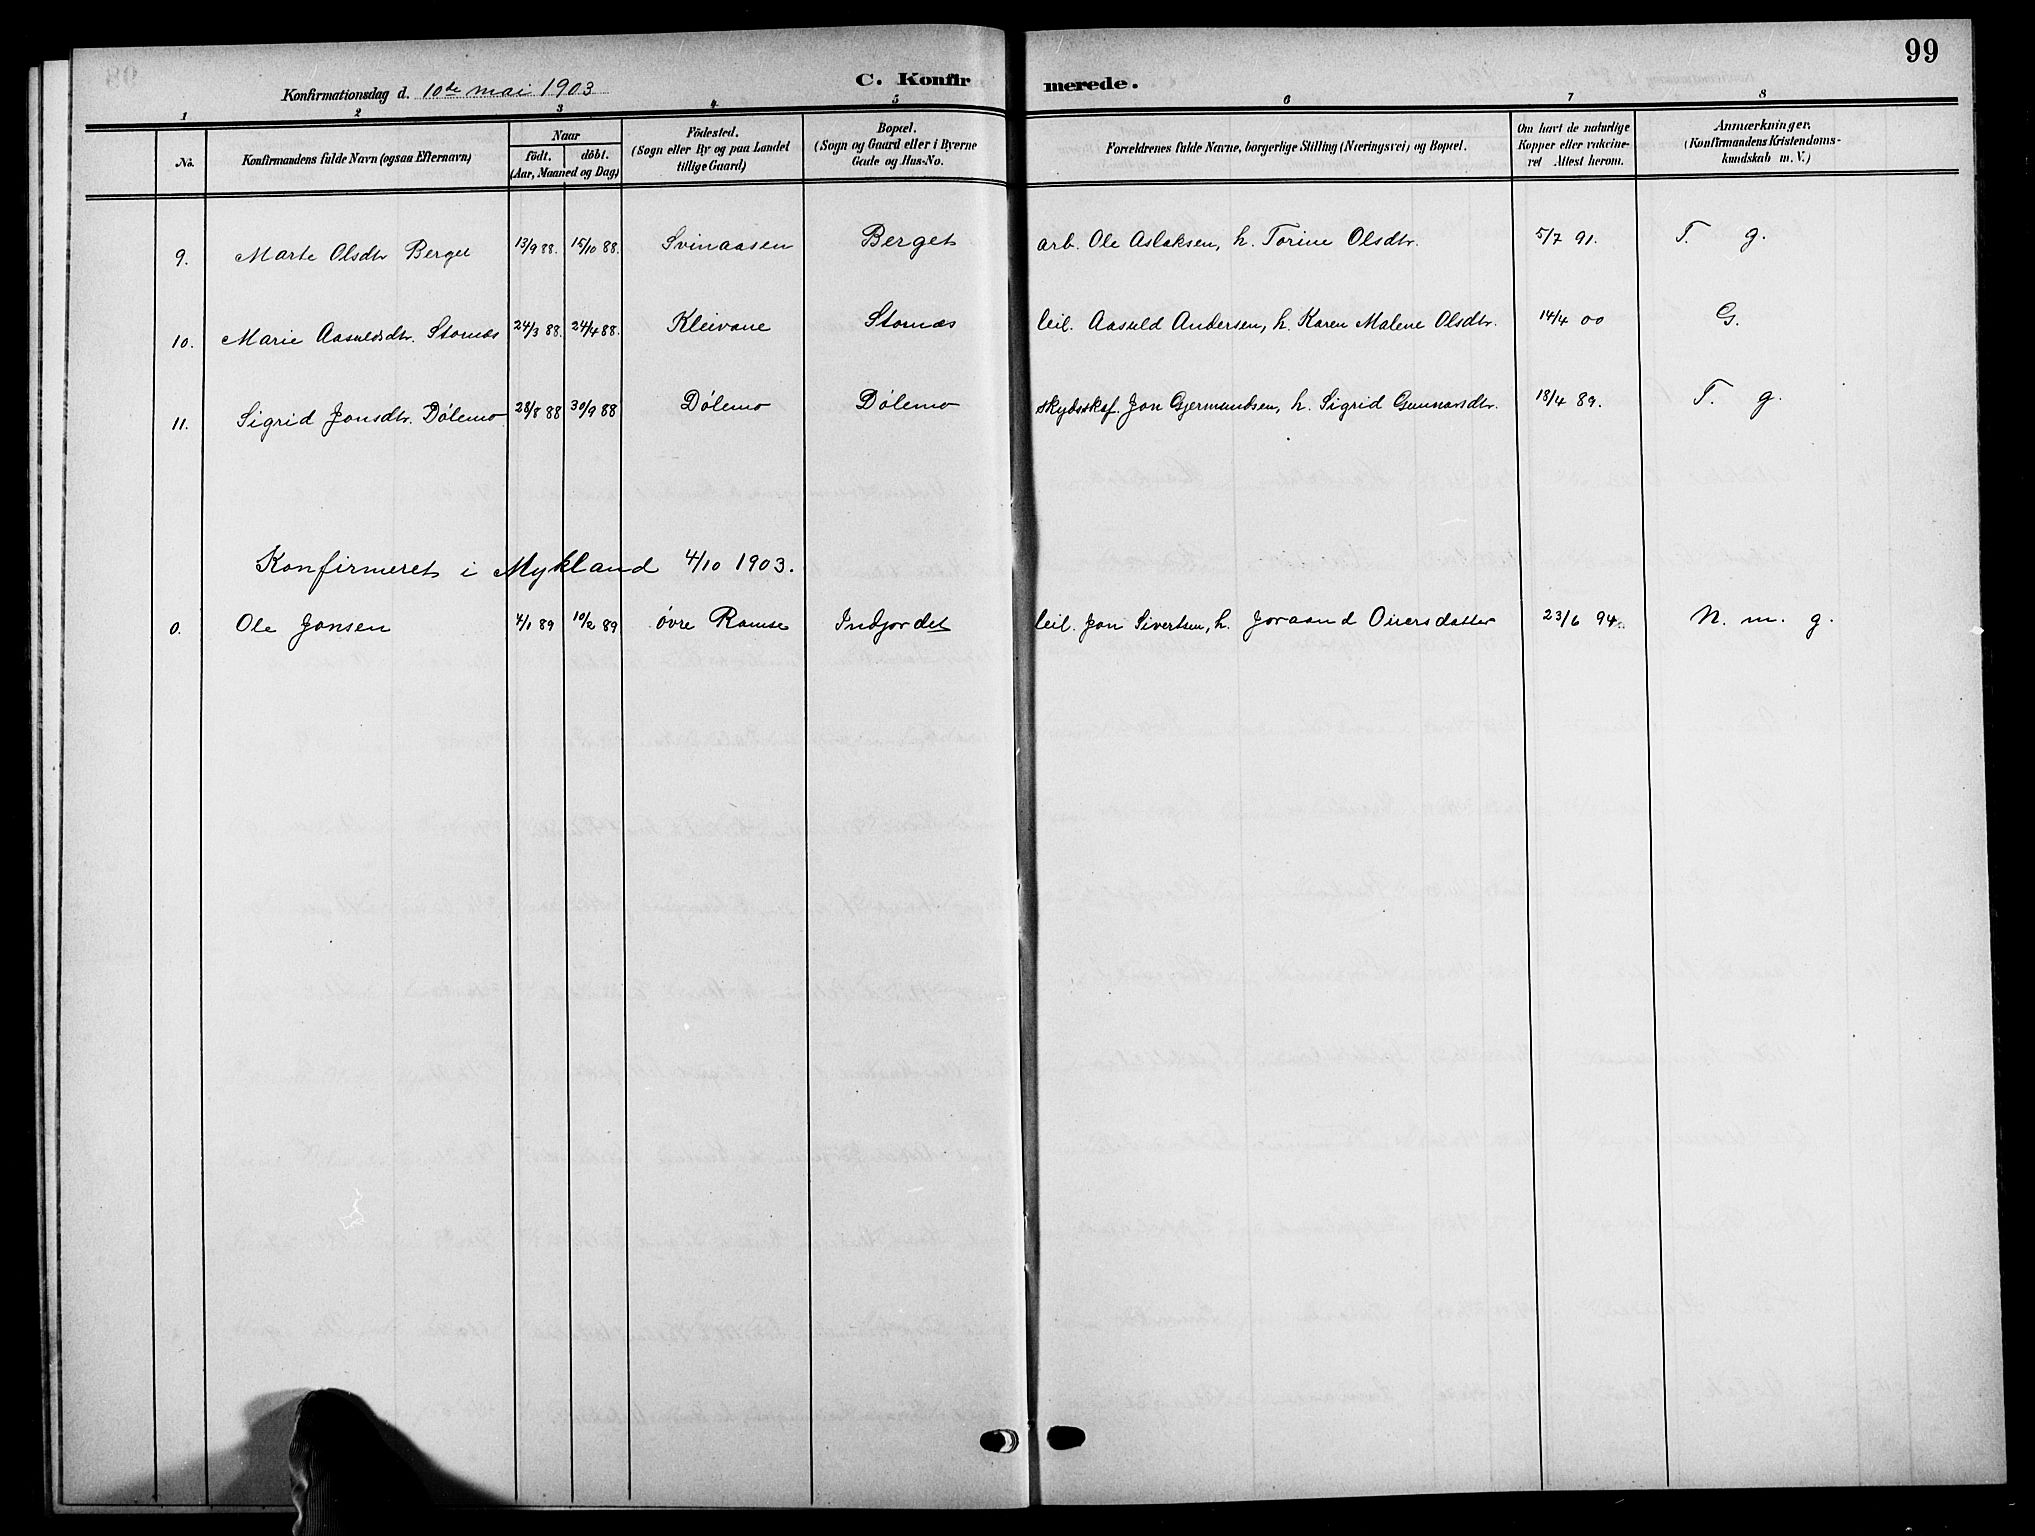 99
Konfirmationsdag d. 10de mai 1903 C. Konfirmerede.
1 2 3 4 5 6 7 8
No. Konfirmandens fulde Navn (ogsaa Efternavn) Naar født. døbt. (Aar, Maaned og Dag) Fødested. (Sogn eller By og paa Landet tillige Gaard) Bopæl. (Sogn og Gaard eller i Byerne Gade og Hus-No. Forældrenes fulde Navne, borgerlige Stilling (Næringsvei) og Bopæl. Om havt de naturlige Kopper eller vakcineret Attest herom. Anmærkninger, (Konfirmandens Kristendomskundskab m. V.)
9. Marte Olsdtr Berget 13/9 88. 15/10 88. Svinaasen Berget arb. Ole Aslaksen, h. Torine Olsdtr. 5/7 91. T. g.
10. Marie Aasuldsdtr. Stornes 24/3 88. 24/4 88. Kleivane Stornæs leil. Aasuld Andersen, h. Karen Malene Olsdtr. 14/4 00 G.
11. Sigrid Jonsdtr. Dølemo 28/8 88 30/9 88 Dølemo Dølemo skydsskaf. Jon Gjermundsen, h. Sigrid Gunnarsdtr. 18/4 89. T. g.
Konfirmeret i Mykland 4/10 1903.
0. Ole Jonsen 4/1 89 10/2 89 øvre Ramse Indjordet leil. Jon Sivertsen, h. Joraand Oiversdatter 23/6 94. N. m. g.